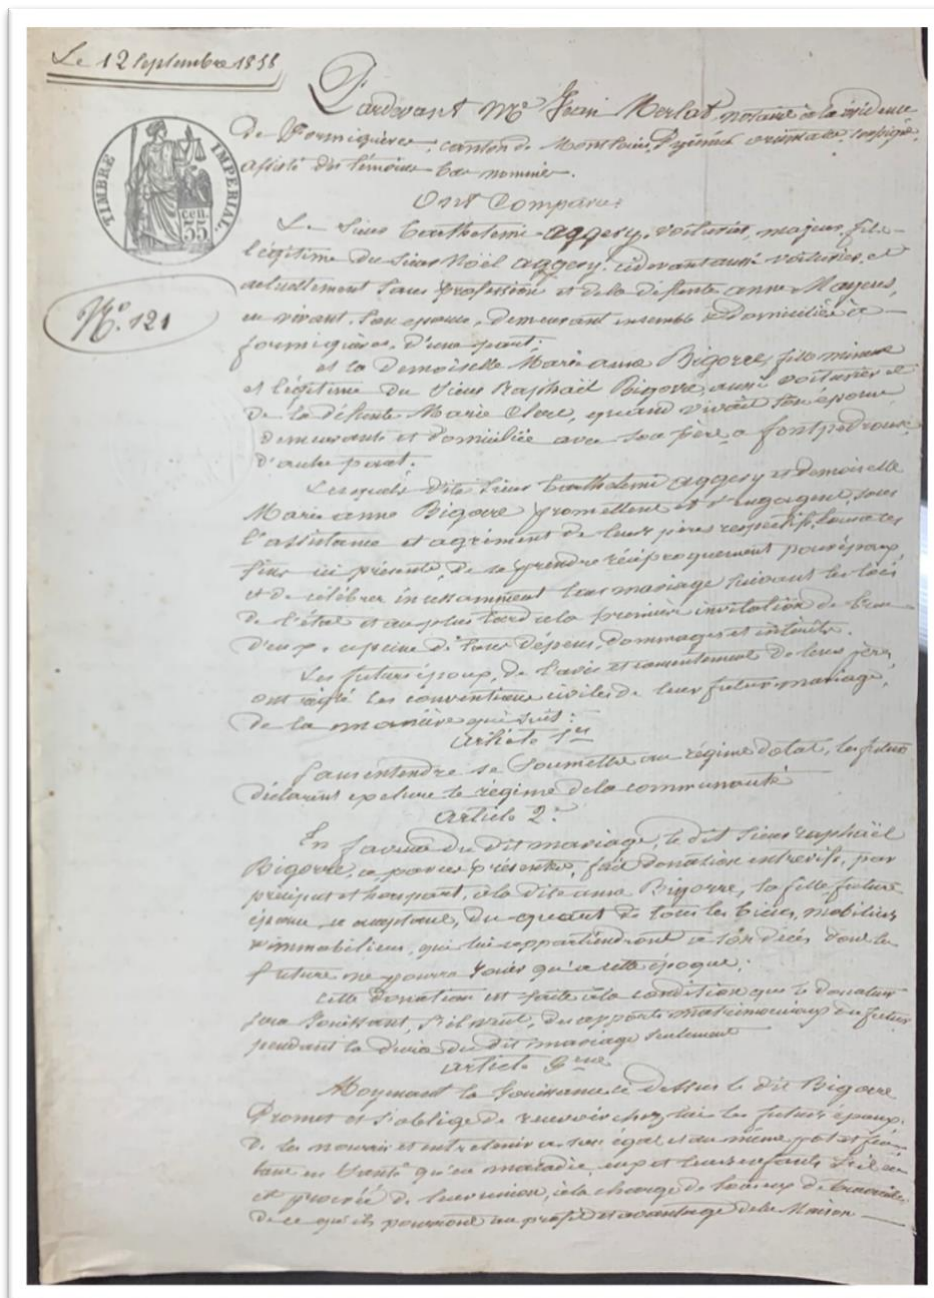 Le 12 Septembre 1858
Pardevant Me Jean Merlat, notaire à la résidence
de Formiguères, canton de Montlouis, Pyrénées orientales, soussigné,
assisté des témoins bas nommés.
TIMBRE IMPERIAL
cen. 35
Ont Comparu:
Le Sieur Barthelemi aggery, voiturier, majeur, fils
légitime du Sieur Noël aggery, cidevant aussi voiturier, et
actuellement sans profession et de la défunte anne Mayens,
en vivant, son epouse, demeurant ensemble et domiciliés à
formiguères, d'une part;
No. 121
et la demoiselle Marie anne Bigorre, fille mineure
et légitime du Sieur Raphaël Bigorre, aussi voiturier et
de la défunte Marie Clerc, quand vivait son epouse,
demeurante et domiciliée avec son père, a fontpedrouse,
d'autre part.
Lesquels dits Sieur Barthelemi aggery et demoiselle
Marie anne Bigorre promettent et s'engagent, sous
l'assistance et agrément de leurs pères respectifs, à ces
fins ici présents, de se prendre réciproquement pour époux,
et de célébrer incessamment leur mariage suivant les lois
de l'état et au plus tard à la première invitation de l'un
d'eux, a peine de tous dépens, dommages et intérêts.
Les futurs époux, de l'avis et consentement de leurs pères,
ont réglé les conventions civiles de leur futur mariage,
de la manière qui suit:
article 1er
Sans entendre se soumettre au régime dotal, les futurs
déclarent exclure le régime de la communauté
article 2e
En faveur du dit mariage, le dit Sieur raphaël
Bigorre, a par ces présentes, fait donation entrevifs, par
préciput et horspart, à la dite anne Bigorre, sa fille future
épouse, ce acceptant, du quart de tous les biens, mobiliers
et immobiliers, qui lui appartiendront à son décès dont la
future ne pourra jouir qu'a cette époque;
cette donation est faite à la condition que le donateur
sera jouissant, s'il veut, des apports matrimoniaux du futur
pendant la durée du dit mariage seulement
article 3eme
Moyenant la jouissance ci dessus le dit Bigorre
Promet et s'oblige de recevoir chez lui les futurs époux,
de les nourrir et entretenir a son égal et au même pot et feu
tant en santé qu'en maladie, eux et leurs enfants s'il en
est procréé de leur union, à la charge de tous eux de travailler
de ce qu'ils pourront au profit et avantage de la Maison